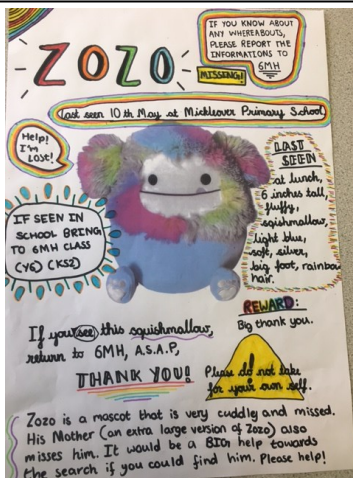 IF YOU KNOW ABOUT
ANY WHEREABOUTS,
PLEASE REPORT THE
INFORMATIONS TO
6MH
ZOZO
MISSING!
Last seen 10th May at Mickleover Primary School
Help!
I'm
Lost!
LAST
SEEN
at lunch,
6 inches tall,
fluffy,
sqishmallow,
light blue,
soft, silver,
big foot, rainbow
hair.
IF SEEN IN
SCHOOL BRING
TO 6MH CLASS
(Y6) (KS2)
REWARD:
Big thank you.
If you see this squishmallow,
return to 6MH, A.S.A.P,
THANK YOU!
Please do not take
for your own self.
Zozo is a mascot that is very cuddly and missed.
His Mother (an extra large version of Zozo) also
misses him. It would be a BIG help towards
the search if you could find him. Please help!